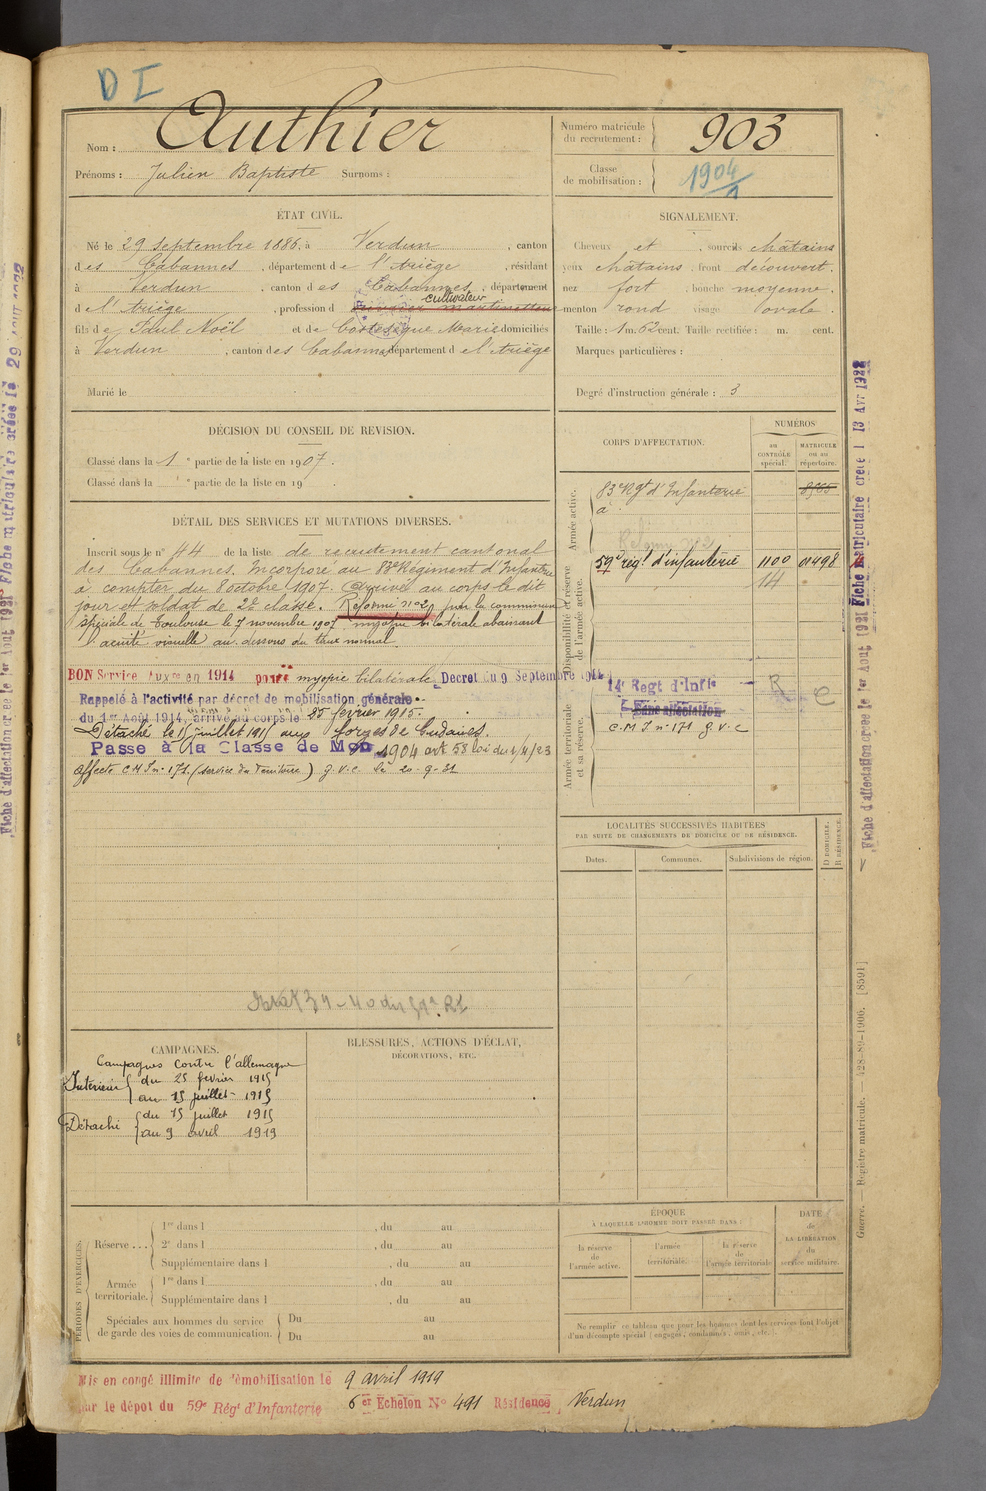 D I
Nom : Authier
Prénoms : Julien Baptiste Surnoms :
Numéro matricule du recrutement : 903
Classe de mobilisation : 1904
ÉTAT CIVIL.
Né le 29 septembre 1886, à Verdun, canton
des Cabannes, département de l'Ariège, résidant
à Verdun, canton des Cabannes, département
de l'Ariège, profession d cultivateur
fils de Paul Noël et de Costesèque Marie domiciliés
à Verdun, canton des Cabannes, département de l'Ariège
Marié le
SIGNALEMENT.
Cheveux et , sourcils châtains
yeux châtains, front découvert.
nez fort, bouche moyenne.
menton rond visage ovale.
Taille : 1 m. 62 cent. Taille rectifiée : m. cent.
Marques particulières :
Degré d'instruction générale : 3
DÉCISION DU CONSEIL DE REVISION.
Classé dans la 1re partie de la liste en 1907.
Classé dans la e partie de la liste en 19 .
DÉTAIL DES SERVICES ET MUTATIONS DIVERSES.
Inscrit sous le n° 44 de la liste de recrutement cantonal
des Cabannes. Incorporé au 83e Régiment d'Infanterie
à compter du 8 octobre 1907. Arrivé au corps le dit
jour et soldat de 2e classe. Réformé n° 2 par la commission
spéciale de Toulouse le 7 novembre 1907 myopie bilatérale abaissant
l'acuité visuelle au dessous du taux normal.
BON Service Auxre en 1914 pour myopie bilatérale Decret du 9 Septembre 1914
Rappelé à l'activité par décret de mobilisation générale
du 1er Août 1914, arrivé au corps le 25 février 1915.
Détaché le 15 juillet 1915 aux forges de
Passe à la Classe de Mob 1904 art 58 loi du 1/4/23
Affecté C M I n° 171 (service du Territoire) g.v.c. le 20-9-31
CORPS D'AFFECTATION.
NUMÉROS
au CONTRÔLE spécial.
MATRICULE ou au répertoire.
Armée active.
83e Rgt d'Infanterie 8565
à
Réformé n° 2
Disponibilité et réserve de l'armée active.
59e régt d'infanterie 1100 01498
14
Armée territoriale et sa réserve.
14e Regt d'Infie
Sans affectation
C.M.I n° 171 g.v.c
R C
LOCALITÉS SUCCESSIVES HABITÉES
PAR SUITE DE CHANGEMENTS DE DOMICILE OU DE RÉSIDENCE.
Dates. Communes. Subdivisions de région.
D DOMICILE.
R RÉSIDENCE.
CAMPAGNES.
Campagnes contre l'allemagne
Intérieur du 25 février 1915
au 15 juillet 1915
Détaché du 15 juillet 1915
au 9 avril 1919
BLESSURES, ACTIONS D'ÉCLAT,
DÉCORATIONS, ETC.
PÉRIODES D'EXERCICES.
Réserve ... 1re dans l , du au
2e dans l , du au
Supplémentaire dans l , du au
Armée territoriale. 1re dans l , du au
Supplémentaire dans l , du au
Spéciales aux hommes du service
de garde des voies de communication.
Du au
Du au
ÉPOQUE
À LAQUELLE L'HOMME DOIT PASSER DANS :
la réserve de l'armée active.
l'armée territoriale.
la réserve de l'armée territoriale
DATE de LA LIBÉRATION du service militaire.
Ne remplir ce tableau que pour les hommes dont les services font l'objet
d'un décompte spécial (engagés, condamnés, omis, etc.).
Mis en congé illimité de démobilisation le 9 avril 1919
par le dépôt du 59e Régt d'Infanterie 6er Echelon No 491 Résidence Verdun
Guerre. — Registre matricule. — 428-89-1906. [8591]
Fiche d'affectation créée le 1er Août 1921 Fiche matriculaire créée le 13 Avr 1922
Fiche d'affectation créée le 1er Août 1921 Fiche matriculaire créée le 29 Août 1922